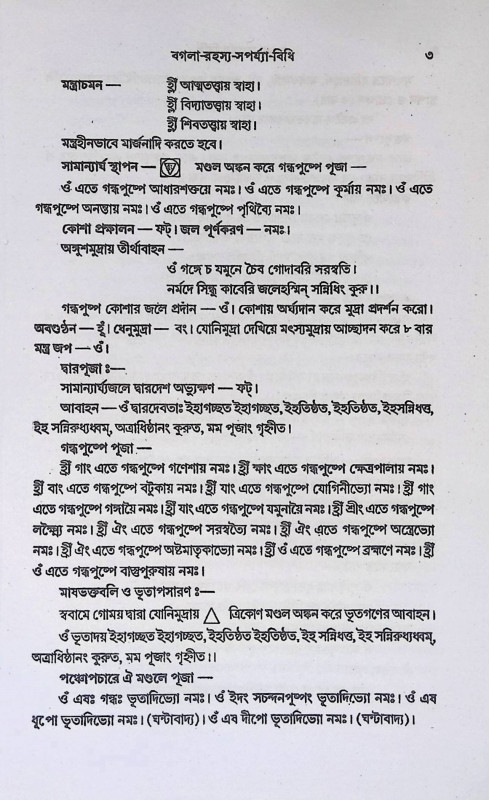 বগলা-রহস্য-সপর্য্যা-বিধি ৩
মন্ত্রাচমন — হ্লীঁ আত্মতত্ত্বায় স্বাহা।
হ্লীঁ বিদ্যাতত্ত্বায় স্বাহা।
হ্লীঁ শিবতত্ত্বায় স্বাহা।
মন্ত্রহীনভাবে মার্জনাদি করতে হবে।
সামান্যার্ঘ স্থাপন — মণ্ডল অঙ্কন করে গন্ধপুষ্পে পূজা —
ওঁ এতে গন্ধপুষ্পে আধারশক্তয়ে নমঃ। ওঁ এতে গন্ধপুষ্পে কূর্মায় নমঃ। ওঁ এতে
গন্ধপুষ্পে অনন্তায় নমঃ। ওঁ এতে গন্ধপুষ্পে পৃথিব্যৈ নমঃ।
কোশা প্রক্ষালন — ফট্। জল পূর্ণকরণ — নমঃ।
অঙ্কুশমুদ্রায় তীর্থাবাহন —
ওঁ গঙ্গে চ যমুনে চৈব গোদাবরি সরস্বতি।
নর্মদে সিন্ধু কাবেরি জলেহস্মিন্ সন্নিধিং কুরু।।
গন্ধপুষ্প কোশার জলে প্রদান — ওঁ। কোশায় অর্ঘ্যদান করে মুদ্রা প্রদর্শন করো।
অবগুণ্ঠন — হূঁ। ধেনুমুদ্রা — বং। যোনিমুদ্রা দেখিয়ে মৎস্যমুদ্রায় আচ্ছাদন করে ৮ বার
মন্ত্র জপ — ওঁ।
দ্বারপূজা ঃ—
সামান্যার্ঘ্যজলে দ্বারদেশ অভ্যুক্ষণ — ফট্।
আবাহন — ওঁ দ্বারদেবতাঃ ইহাগচ্ছত ইহাগচ্ছত, ইহতিষ্ঠত, ইহতিষ্ঠত, ইহসন্নিধত্ত,
ইহ সন্নিরুধ্যধ্বম্, অত্রাধিষ্ঠানং কুরুত, মম পূজাং গৃহ্ণীত।
গন্ধপুষ্পে পূজা —
হ্রীঁ গাং এতে গন্ধপুষ্পে গণেশায় নমঃ। হ্রীঁ ক্ষাং এতে গন্ধপুষ্পে ক্ষেত্রপালায় নমঃ।
হ্রীঁ বাং এতে গন্ধপুষ্পে বটুকায় নমঃ। হ্রীঁ যাং এতে গন্ধপুষ্পে যোগিনীভ্যো নমঃ। হ্রীঁ গাং
এতে গন্ধপুষ্পে গঙ্গায়ৈ নমঃ। হ্রীঁ যাং এতে গন্ধপুষ্পে যমুনায়ৈ নমঃ। হ্রীঁ শ্রীং এতে গন্ধপুষ্পে
লক্ষ্ম্যৈ নমঃ। হ্রীঁ ঐং এতে গন্ধপুষ্পে সরস্বত্যৈ নমঃ। হ্রীঁ ঐং এতে গন্ধপুষ্পে অস্ত্রেভ্যো
নমঃ। হ্রীঁ ঐং এতে গন্ধপুষ্পে অষ্টমাতৃকাভ্যো নমঃ। হ্রীঁ ওঁ এতে গন্ধপুষ্পে ব্রহ্মণে নমঃ। হ্রীঁ
ওঁ এতে গন্ধপুষ্পে বাস্তুপুরুষায় নমঃ।
মাষভক্তবলি ও ভূতাপসারণ ঃ—
স্ববামে গোময় দ্বারা যোনিমুদ্রায় ত্রিকোণ মণ্ডল অঙ্কন করে ভূতগণের আবাহন।
ওঁ ভূতাদয় ইহাগচ্ছত ইহাগচ্ছত, ইহতিষ্ঠত ইহতিষ্ঠত, ইহ সন্নিধত্ত, ইহ সন্নিরুধ্যধ্বম্,
অত্রাধিষ্ঠানং কুরুত, মম পূজাং গৃহ্ণীত।।
পঞ্চোপচারে ঐ মণ্ডলে পূজা —
ওঁ এষঃ গন্ধঃ ভূতাদিভ্যো নমঃ। ওঁ ইদং সচন্দনপুষ্পং ভূতাদিভ্যো নমঃ। ওঁ এষ
ধূপো ভূতাদিভ্যো নমঃ। (ঘন্টাবাদ্য)। ওঁ এষ দীপো ভূতাদিভ্যো নমঃ। (ঘন্টাবাদ্য)।